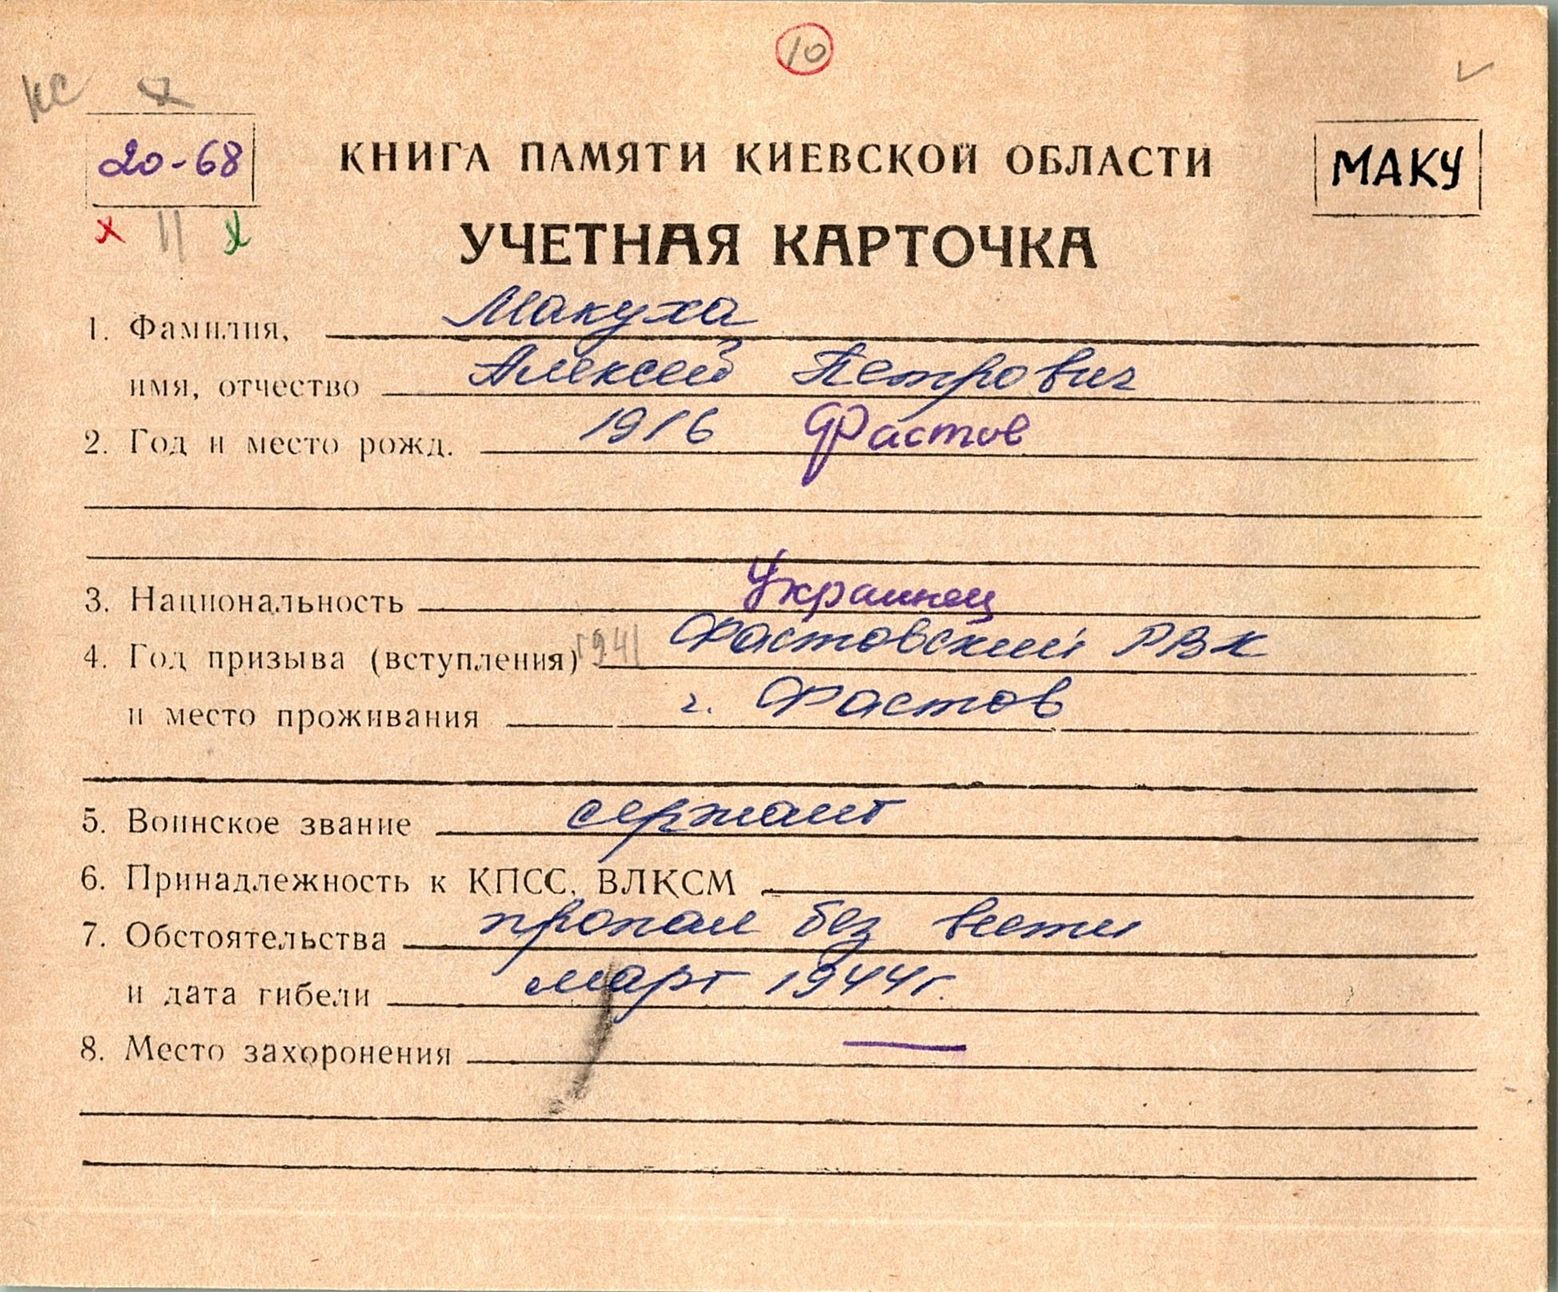 10
КС х
20-68
КНИГА ПАМЯТИ КИЕВСКОЙ ОБЛАСТИ
МАКУ
х II х
УЧЕТНАЯ КАРТОЧКА
1. Фамилия, Макуха
имя, отчество Алексей Петрович
2. Год и место рожд. 1916 Фастов
3. Национальность Украинец
4. Год призыва (вступления) 1941 Фастовский РВК
и место проживания г. Фастов
5. Воинское звание сержант
6. Принадлежность к КПСС, ВЛКСМ
7. Обстоятельства пропал без вести
и дата гибели март 1944г.
8. Место захоронения —